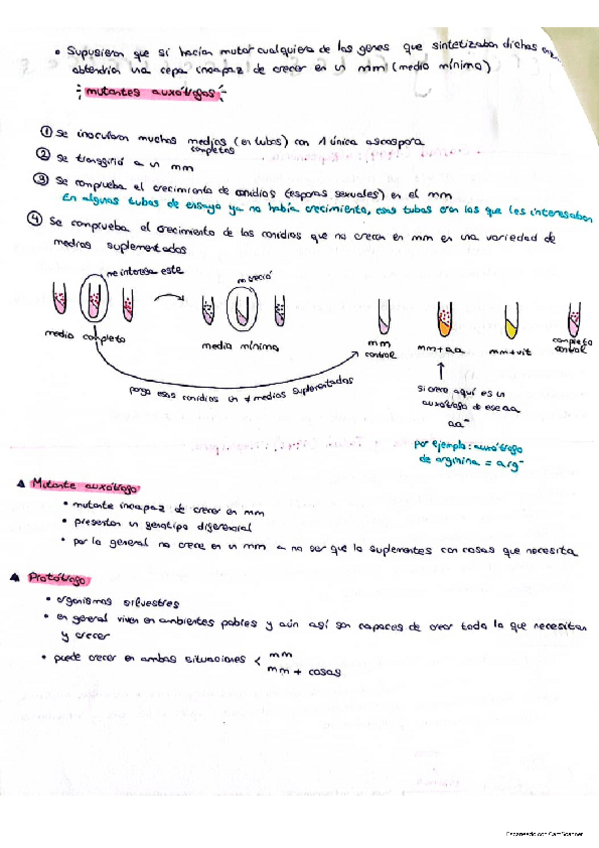 • Supusieron que si hacían mutar cualquiera de los genes que sintetizaban dichas
obtendría una cepa incapaz de crecer en un mm (medio mínimo)
mutantes auxótrofos
① Se inocularon muchos medios (en tubos) con 1 única ascospora
completos
② Se transfirió a un mm
③ Se comprueba el crecimiento de conidios (esporas sexuales) en el mm
En algunos tubos de ensayo ya no había crecimiento, esos tubos eran los que les interesaban
④ Se comprueba el crecimiento de los conidios que no crecen en mm en una variedad de
medios suplementados
me interesa este
no creció
medio completo
medio mínimo
mm
control
mm+aa
mm+vit
completo
control
pongo esas conidios en ≠ medios suplementados
si crece aquí es un
auxótrofo de ese aa
aa⁻
por ejemplo: auxótrofo
de arginina = arg⁻
▲ Mutante auxótrofo
• mutante incapaz de crecer en mm
• presentan un genotipo diferencial
• por lo general no crece en un mm a no ser que lo suplementes con cosas que necesita
▲ Protótrofo
• organismos silvestres
• en general viven en ambientes pobres y aún así son capaces de crear todo lo que necesitan
y crecer
• puede crecer en ambas situaciones < mm
mm + cosas
Escaneado con CamScanner